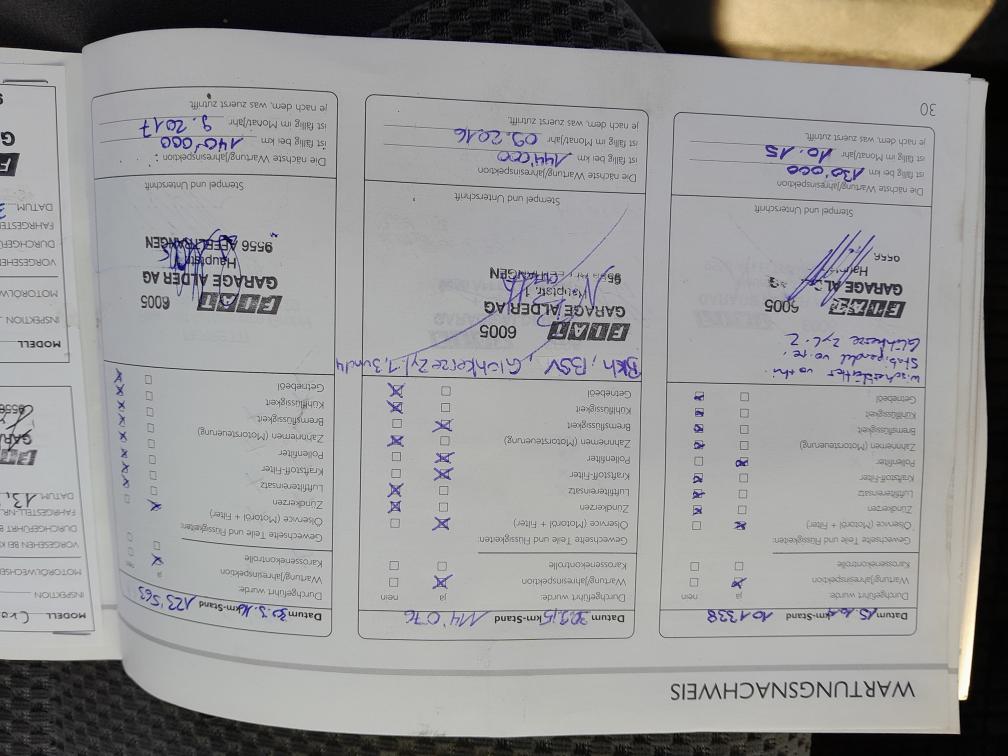 WARTUNGSNACHWEIS
Datum 15.10.14 km-Stand 101338
Durchgeführt wurde: ja nein
Wartung/Jahresinspektion
Karosseriekontrolle
Gewechselte Teile und Flüssigkeiten:
Ölservice (Motoröl + Filter)
Zündkerzen
Luftfiltereinsatz
Kraftstoff-Filter
Pollenfilter
Zahnriemen (Motorsteuerung)
Bremsflüssigkeit
Kühlflüssigkeit
Getriebeöl
Wischerblätter vo+hi.
Stabipendel vo re.
Glühkerze Zyl. 2
FIAT 6005
GARAGE AL
9556
Stempel und Unterschrift
Die nächste Wartung/Jahresinspektion
ist fällig bei km 130'000
ist fällig im Monat/Jahr 10.15
je nach dem, was zuerst zutrifft.
30
Datum 30.9.15 km-Stand 114'076
Durchgeführt wurde: ja nein
Wartung/Jahresinspektion
Karosseriekontrolle
Gewechselte Teile und Flüssigkeiten:
Ölservice (Motoröl + Filter)
Zündkerzen
Luftfiltereinsatz
Kraftstoff-Filter
Pollenfilter
Zahnriemen (Motorsteuerung)
Bremsflüssigkeit
Kühlflüssigkeit
Getriebeöl
BSV, Glühkerze Zyl. 1, 3 und 4
FIAT 6005
GARAGE ALDER AG
Hauptstr. 1
Stempel und Unterschrift
Die nächste Wartung/Jahresinspektion
ist fällig bei km 144'000
ist fällig im Monat/Jahr 09.2016
je nach dem, was zuerst zutrifft.
Datum km-Stand 123'563
Durchgeführt wurde: ja nein
Wartung/Jahresinspektion
Karosseriekontrolle
Gewechselte Teile und Flüssigkeiten:
Ölservice (Motoröl + Filter)
Zündkerzen
Luftfiltereinsatz
Kraftstoff-Filter
Pollenfilter
Zahnriemen (Motorsteuerung)
Bremsflüssigkeit
Kühlflüssigkeit
Getriebeöl
FIAT 6005
GARAGE ALDER AG
Hauptstr.
9556 AFFELTRANGEN
Stempel und Unterschrift
Die nächste Wartung/Jahresinspektion
ist fällig bei km 140'000
ist fällig im Monat/Jahr 9.2017
je nach dem, was zuerst zutrifft.
MODELL
INSPEKTION
MOTORÖLWECHSEL
VORGESEHEN BEI K
DURCHGEFÜHRT B
FAHRGESTELL-NR.
DATUM 13.
GARA
9556
MODELL
INSPEKTION
MOTORÖLW
VORGESEHE
DURCHGEFÜ
FAHRGESTEL
DATUM